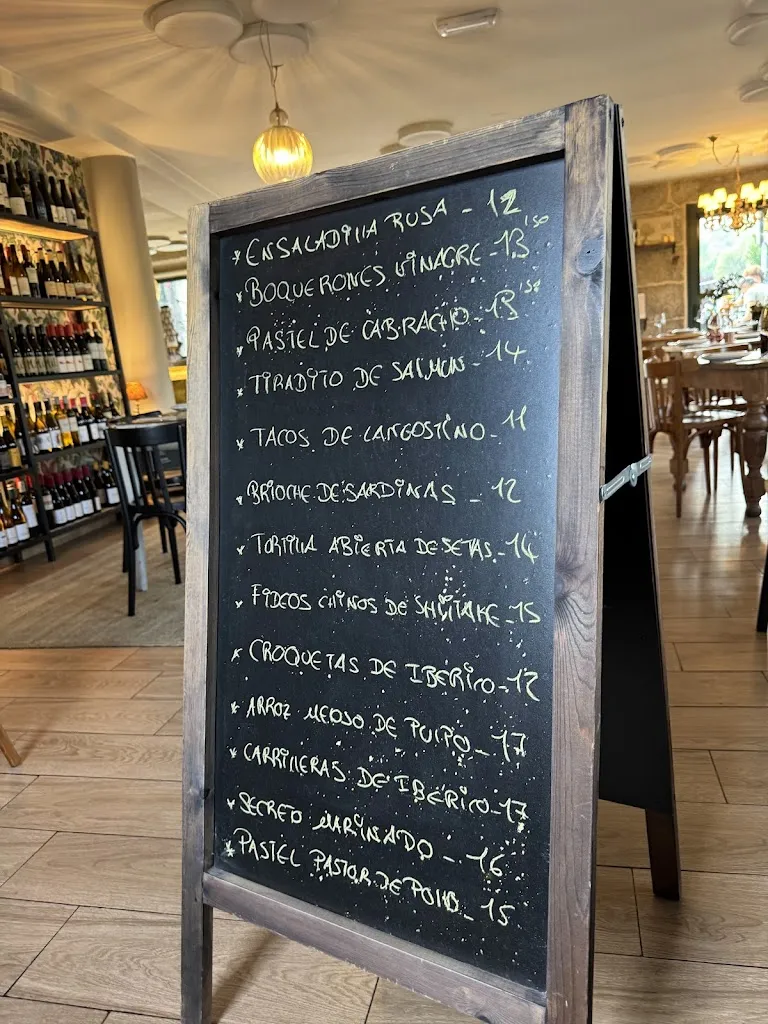 * ENSALADILLA RUSA - 12
* BOQUERONES VINAGRE - 13'50
* PASTEL DE CABRACHO - 13'50
* TIRADITO DE SALMON - 14
* TACOS DE LANGOSTINO - 11
* BRIOCHE DE SARDINAS - 12
* TORTILLA ABIERTA DE SETAS - 14
* FIDEOS CHINOS DE SHIITAKE - 15
* CROQUETAS DE IBERICO - 12
* ARROZ MELOSO DE PULPO - 17
* CARRILLERAS DE IBERICO - 17
* SECRETO MARINADO - 16
* PASTEL PASTOR DE POLLO - 15